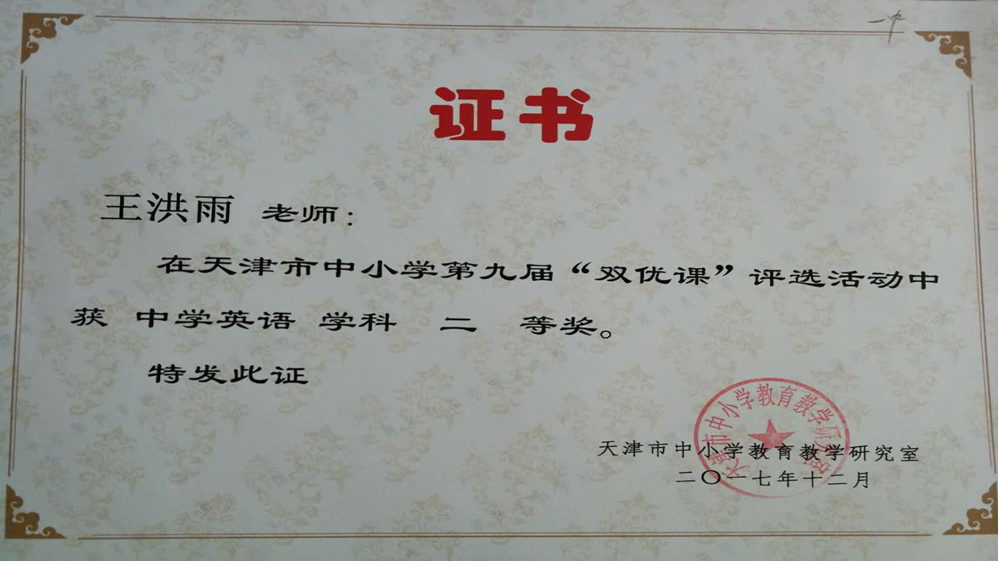 一中
证书
王洪雨 老师：
在天津市中小学第九届“双优课”评选活动中
获 中学英语 学科 二 等奖。
特发此证
天津市中小学教育教学研究室
天津市中小学教育教学研究室
二〇一七年十二月